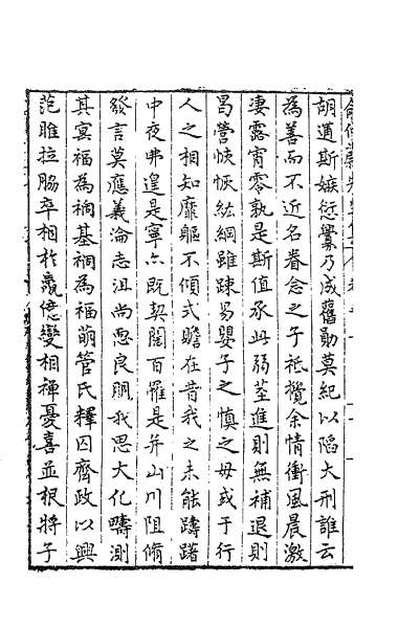 胡遘斯嫉衍釁乃成舊勛莫紀以陷大刑誰云
為善而不近名眷念之子祗攪余情衝風晨激
凄露宵零孰是斯值承此弱莖進則無補退則
昌營怏恢紘綱雖踈易嬰子之慎之毋或于行
人之相知靡軀不傾式瞻在昔我之未能躊躇
中夜弗遑是寧亦既契闊百罹是并山川阻脩
發言莫應義淪志沮尚慝良朋我思大化疇測
其㝠福為禍基禍為福萌管氏釋囚齊政以興
范雎拉脇卒相於嬴億變相禪憂喜並根將子